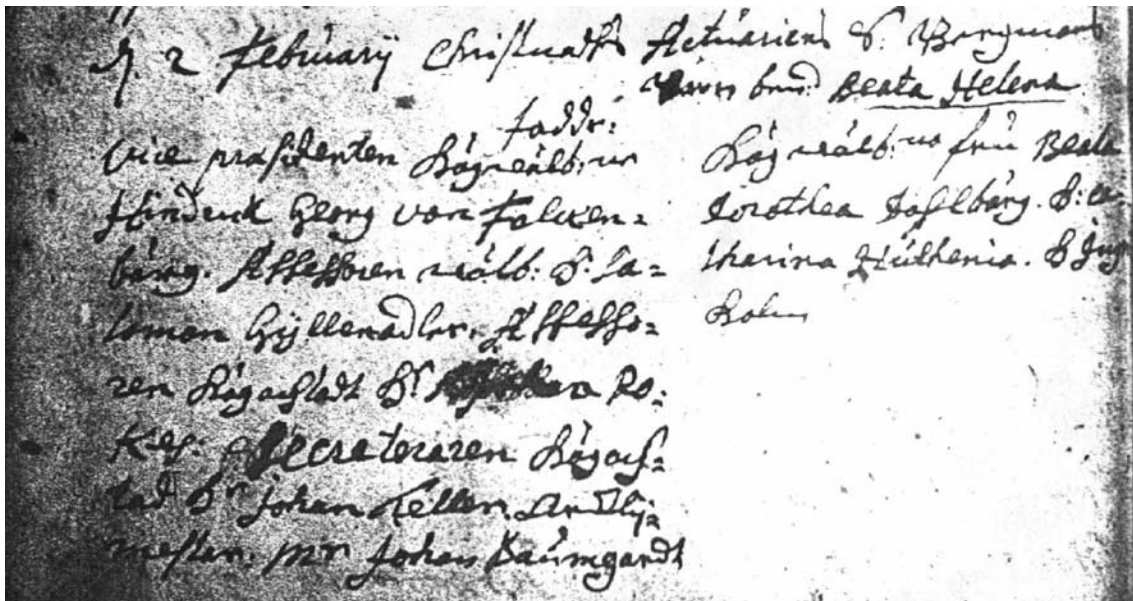 d. 2 Februarij Christnades Actuariens S. Bergmans
barn Beata Helena
faddr:
Vice præsidenten Högwälb:ne
Hindrick Georg von Falcken=
bärg. Assessoren wälb: H. Sa=
lomon Gyllenadler. Assesso=
ren Högachtadt Hr Ro=
kes: Secreteraren Högach=
tad Hr Johan Teller.
mesten. Mr Johan Baumgardt
Högwälb:ne fru Beata
Dorothea Dahlbärg. H: Ca=
tharina Ruthenia. H